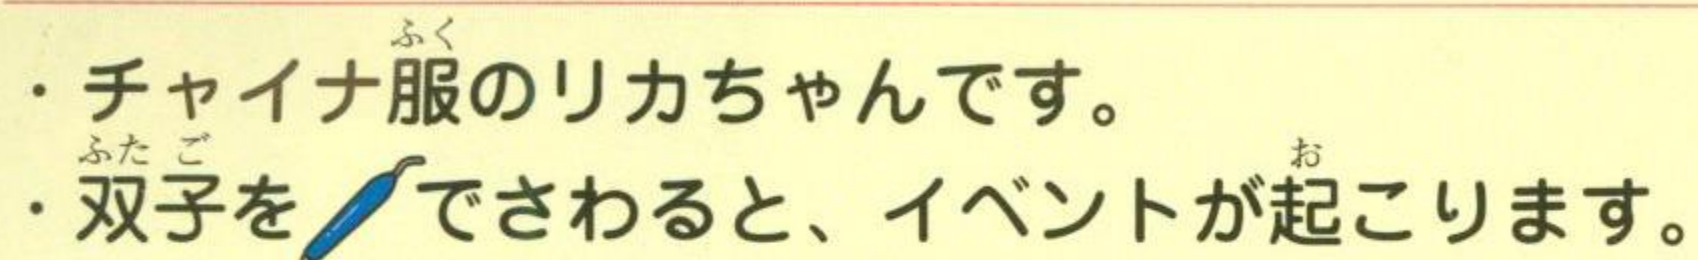 ・チャイナ服のリカちゃんです。
・双子をでさわると、イベントが起こります。